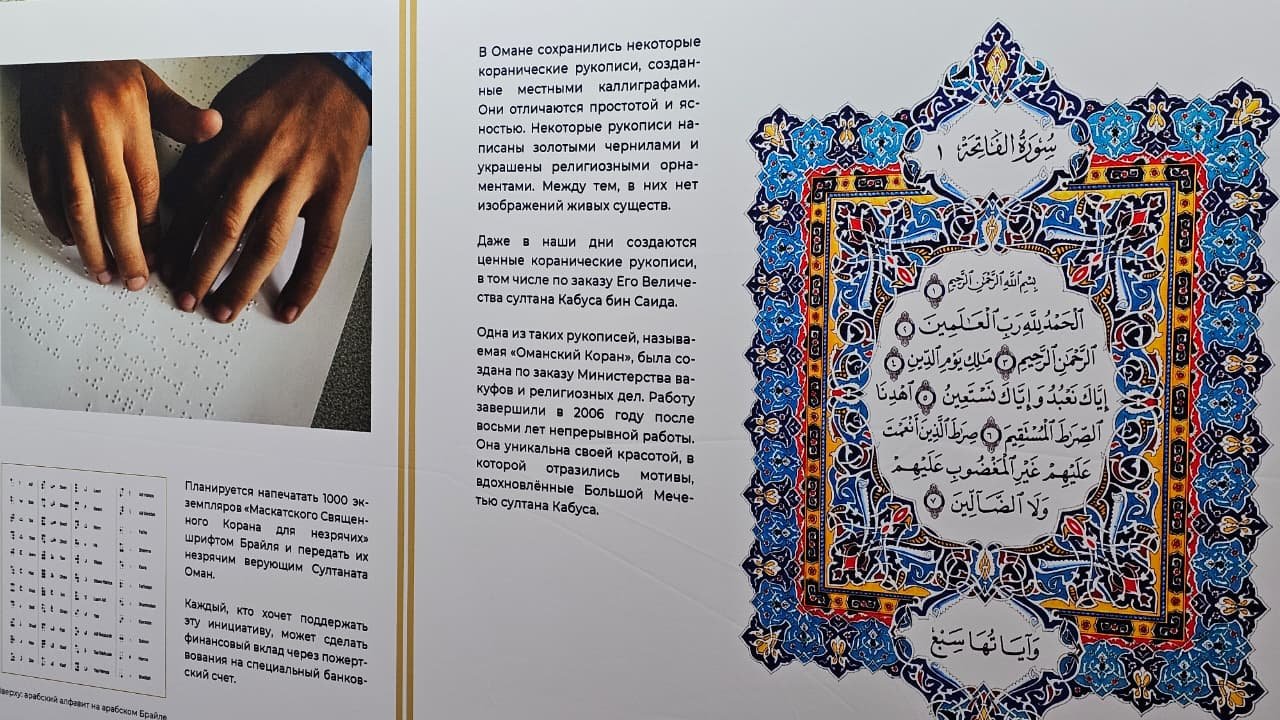 Планируется напечатать 1000 эк-
земпляров «Маскатского Священ-
ного Корана для незрячих»
шрифтом Брайля и передать их
незрячим верующим Султаната
Оман.
Каждый, кто хочет поддержать
эту инициативу, может сделать
финансовый вклад через пожерт-
вования на специальный банков-
ский счет.
арабский алфавит на арабском Брайле
В Омане сохранились некоторые
коранические рукописи, создан-
ные местными каллиграфами.
Они отличаются простотой и яс-
ностью. Некоторые рукописи на-
писаны золотыми чернилами и
украшены религиозными орна-
ментами. Между тем, в них нет
изображений живых существ.
Даже в наши дни создаются
ценные коранические рукописи,
в том числе по заказу Его Величе-
ства султана Кабуса бин Саида.
Одна из таких рукописей, называ-
емая «Оманский Коран», была со-
здана по заказу Министерства ва-
куфов и религиозных дел. Работу
завершили в 2006 году после
восьми лет непрерывной работы.
Она уникальна своей красотой, в
которой отразились мотивы,
вдохновлённые Большой Мече-
тью султана Кабуса.
سُورَةُ الفَاتِحَةِ ١
بِسْمِ اللَّهِ الرَّحْمَٰنِ الرَّحِيمِ ١
الْحَمْدُ لِلَّهِ رَبِّ الْعَالَمِينَ ٢
الرَّحْمَٰنِ الرَّحِيمِ ٣ مَالِكِ يَوْمِ الدِّينِ ٤
إِيَّاكَ نَعْبُدُ وَإِيَّاكَ نَسْتَعِينُ ٥ اهْدِنَا
الصِّرَاطَ الْمُسْتَقِيمَ ٦ صِرَاطَ الَّذِينَ أَنْعَمْتَ
عَلَيْهِمْ غَيْرِ الْمَغْضُوبِ عَلَيْهِمْ
وَلَا الضَّالِّينَ ٧
وَآيَاتُهَا سَبْعٌ